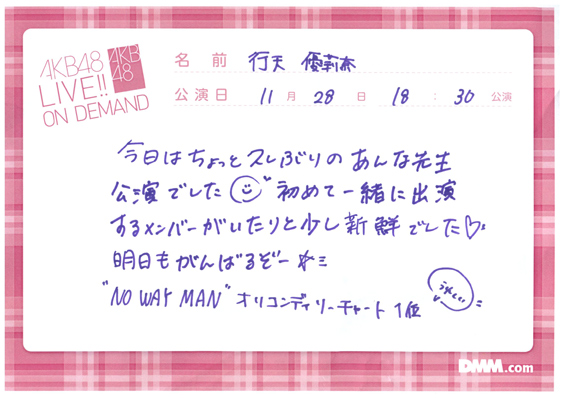 AKB48
LIVE!!
ON DEMAND
AKB
48
名前 行天 優莉奈
公演日 11月 28日 18:30公演
今日はちょっと久しぶりの あんな先生
公演でした 初めて一緒に出演
するメンバーがいたりと少し新鮮でした♡
明日もがんばるぞー
"NO WAY MAN" オリコンデイリーチャート 1位 うれしい
DMM.com